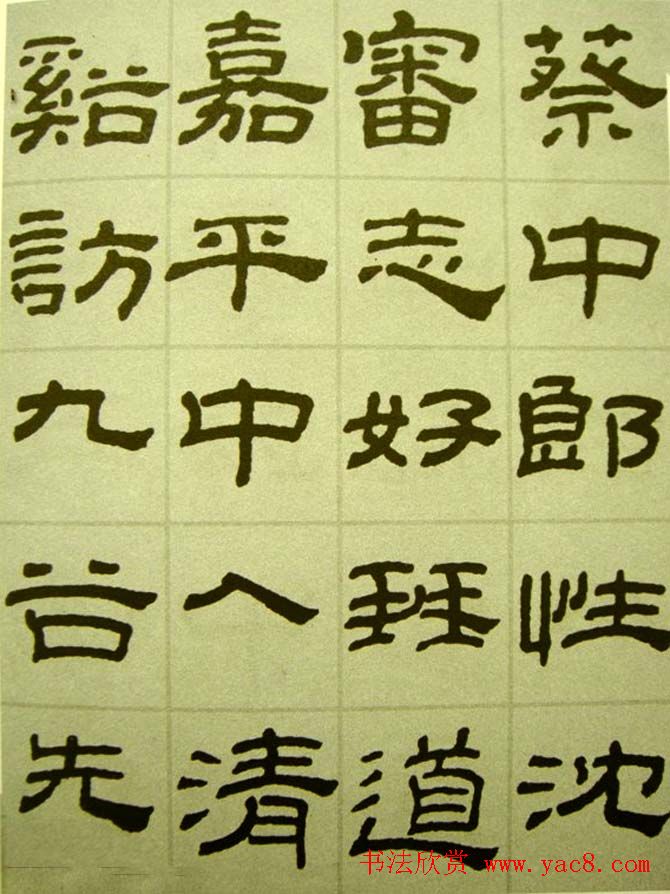 蔡中郎性沈
審志好琴道
嘉平中入清
谿訪九谷先
书法欣赏 www.yac8.com